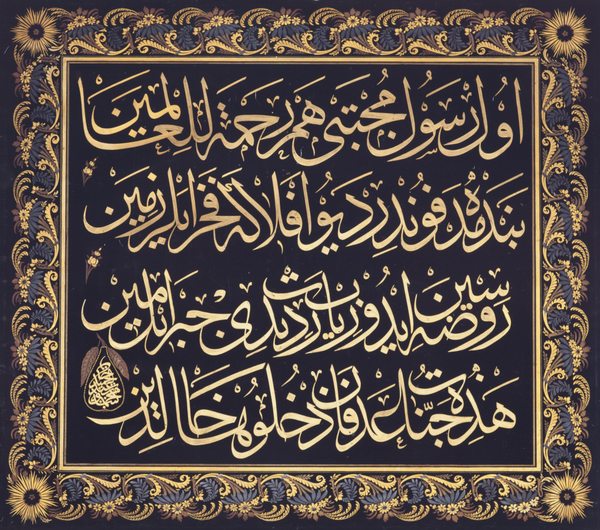 اول رسول مجتبى هم رحمة للعالمين
بنده مدفوندر ديو افلاكه فخر ايلر زمين
روضه سين ايدوب زيارت ديدى جبرائيل امين
هذه جنات عدن فادخلوها خالدين